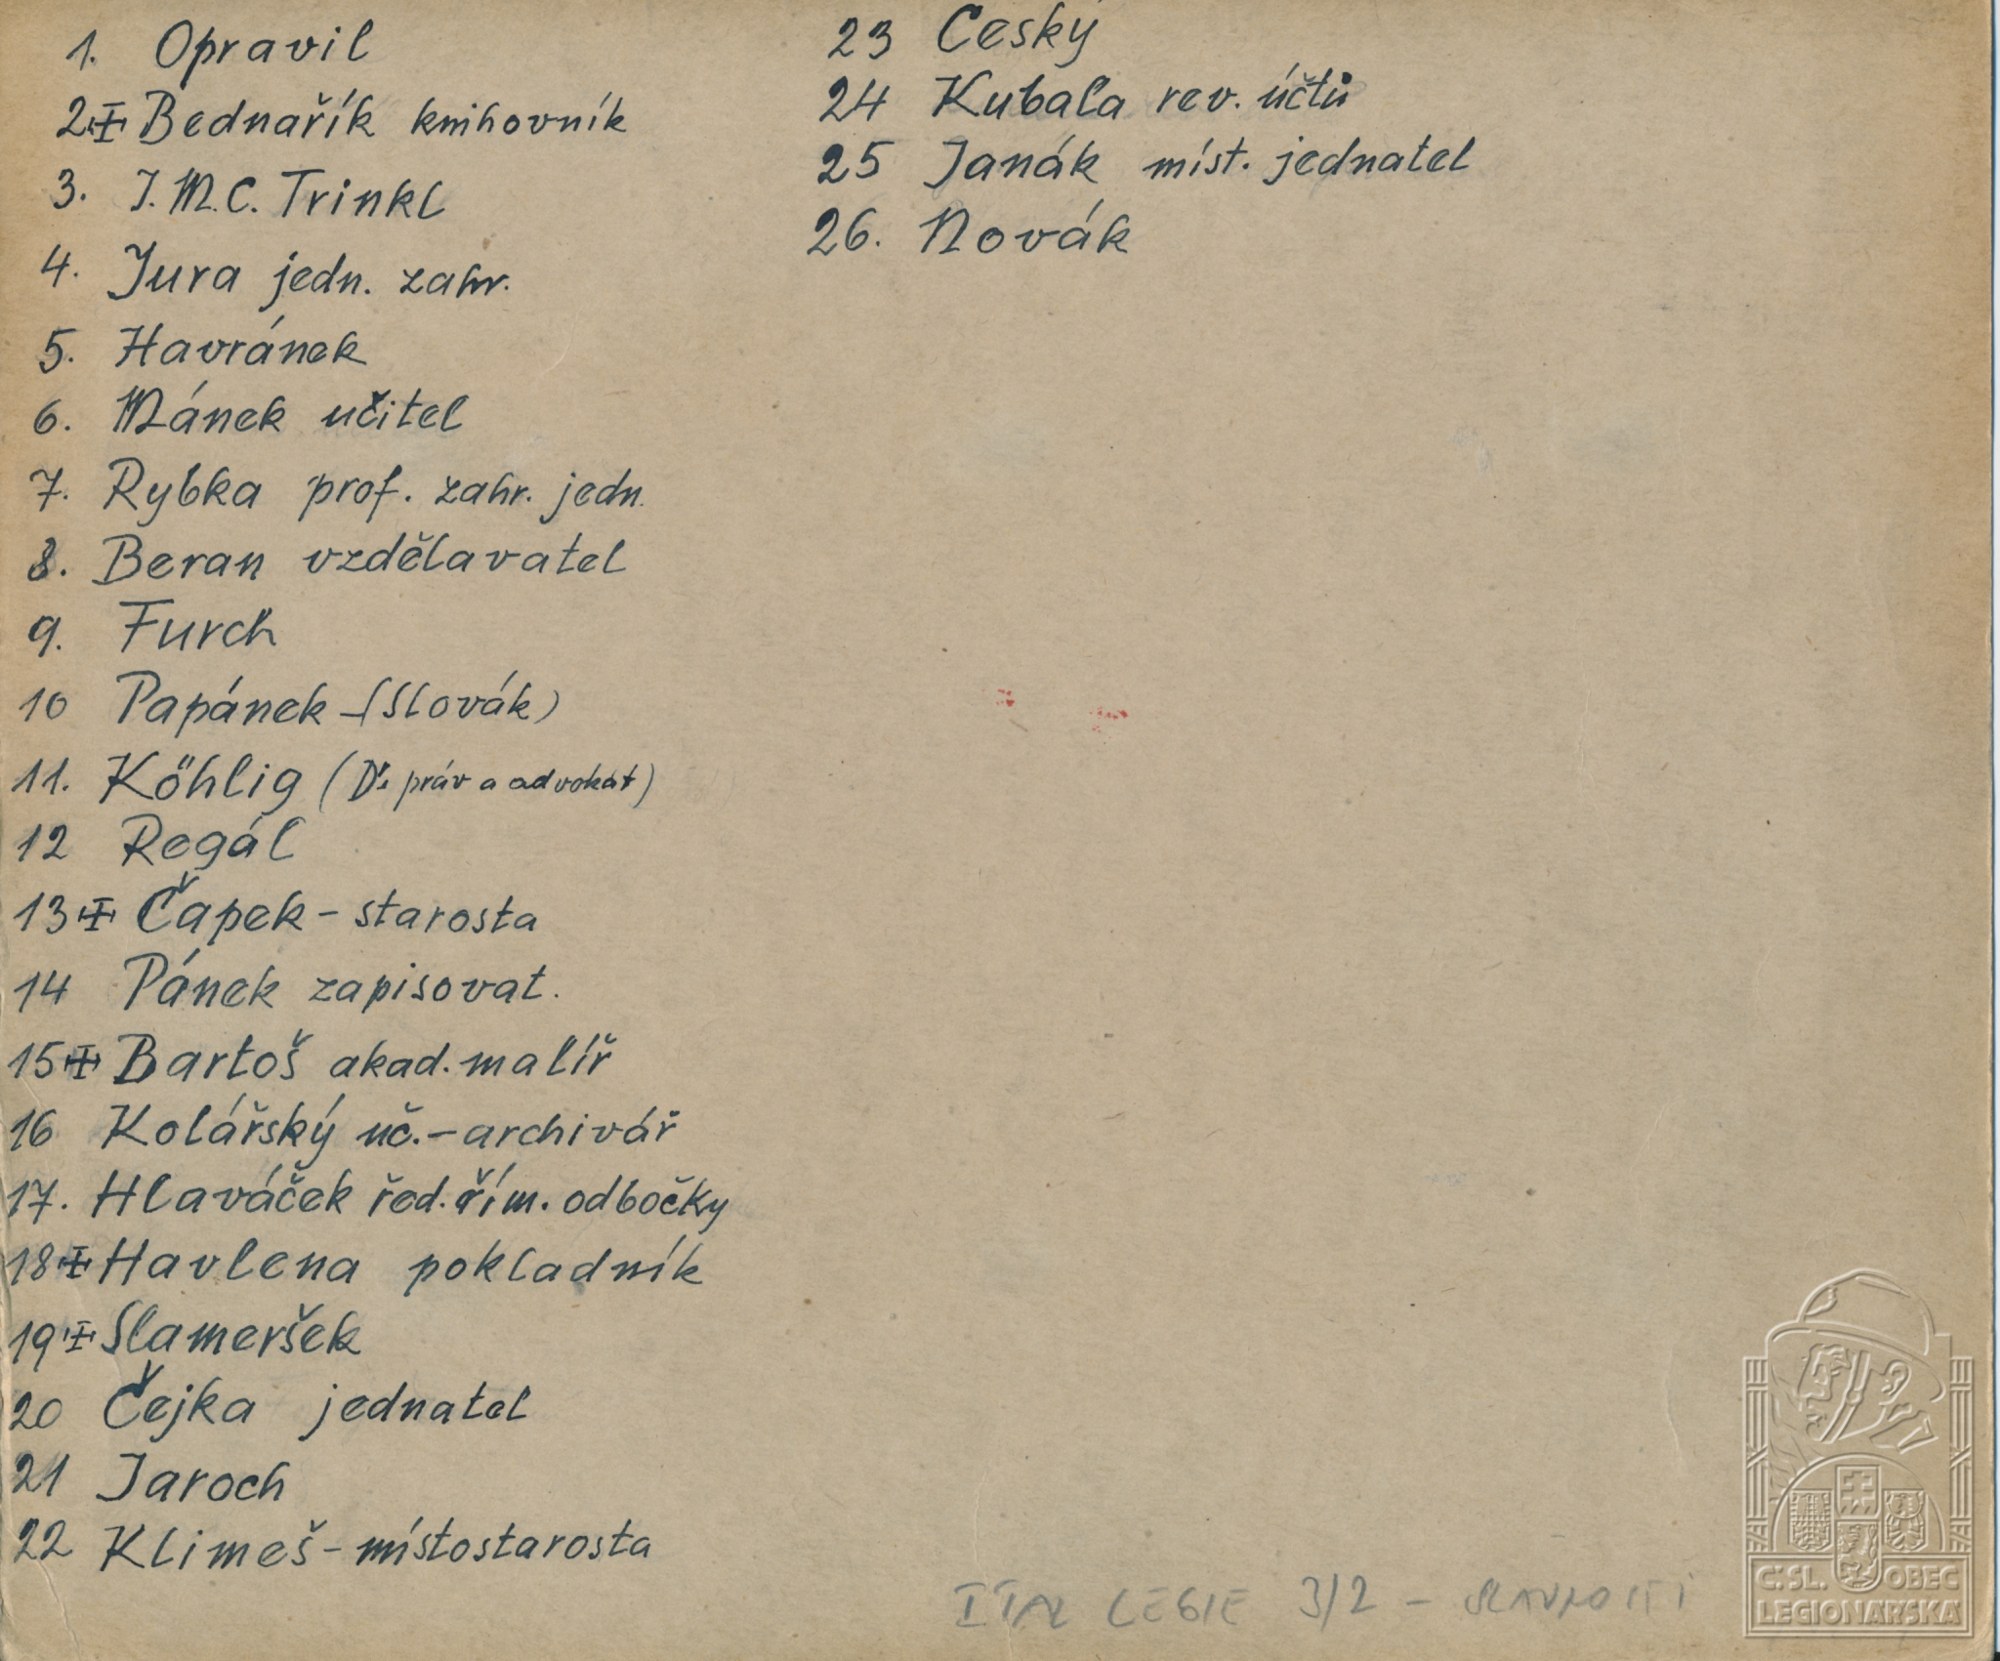 1. Opravil
2 Bednařík knihovník
3. J.M.C. Trinkl
4. Jura jedn. zahr.
5. Havránek
6. Mánek učitel
7. Rybka prof. zahr. jedn.
8. Beran vzdělavatel
9. Furch
10 Papánek - (Slovák)
11. Köhlig (Dr práv a advokát)
12 Regál
13 Čapek - starosta
14 Pánek zapisovat.
15 Bartoš akad. malíř
16 Kolářský uč. - archivář
17. Hlaváček řed. řím. odbočky
18 Havlena pokladník
19 Slameršek
20 Čejka jednatel
21 Jaroch
22 Klimeš - místostarosta
23 Český
24 Kubala rev. účtů
25 Janák míst. jednatel
26. Novák
ITAL LEGIE 3/2 - SLAVNOSTI
Č.SL. OBEC
LEGIONÁŘSKÁ